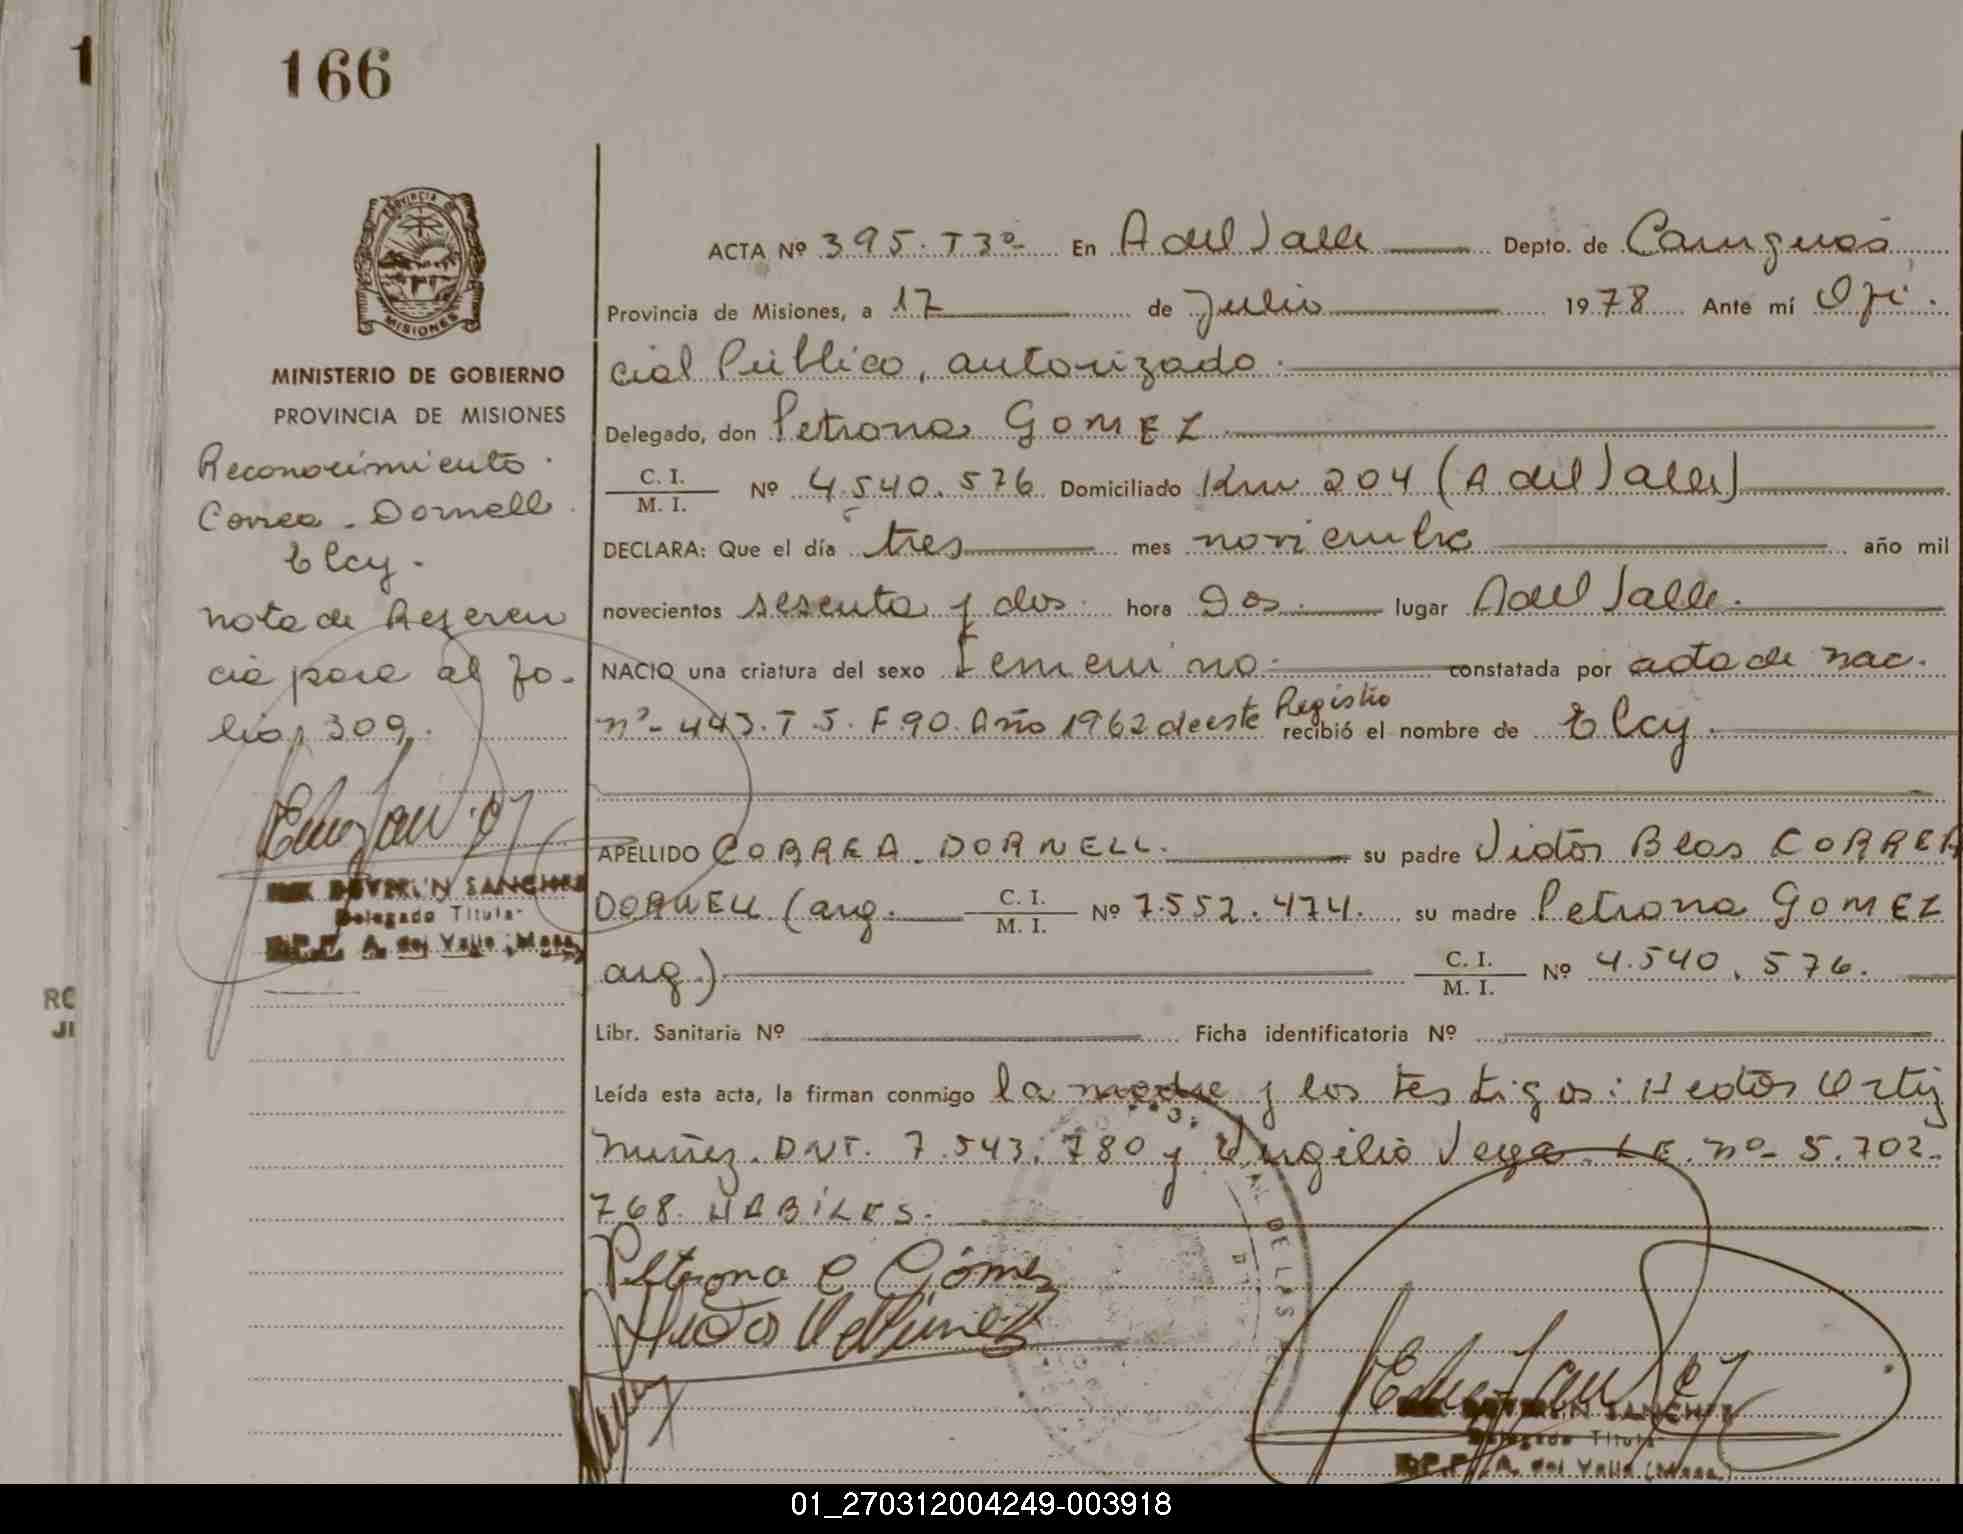 1
166
PROVINCIA DE
MISIONES
MINISTERIO DE GOBIERNO
PROVINCIA DE MISIONES
Reconocimiento.
Correa. Dornell
Elcy.
nota de Referen
cia para al fo-
lio, 309.
SANCHEZ
Delegado Titular
A. del Valle (Mnes.)
RC
JI
ACTA Nº 395. T3º- En A del Valle Depto. de Cainguás
Provincia de Misiones, a 17 de Julio 1978 Ante mí Ofi.
cial Público, autorizado.
Delegado, don Petrona GOMEZ
C. I. / M. I. Nº 4.540.576 Domiciliado Km 204 (A del Valle)
DECLARA: Que el día tres mes noviembre año mil
novecientos sesenta y dos. hora Dos. lugar A del Valle.
NACIO una criatura del sexo Femenino. constatada por acta de nac.
nº- 443. T 5. F 90. Año 1962 de este Registro recibió el nombre de Elcy.
APELLIDO CORREA. DORNELL. su padre Victor Blas CORREA
DORNELL (arg. C. I. / M. I. Nº 7.552.474. su madre Petrona GOMEZ
arg.) C. I. / M. I. Nº 4.540.576.
Libr. Sanitaria Nº Ficha identificatoria Nº
Leída esta acta, la firman conmigo la madre y los testigos: Hector Ortiz
Nuñez. DNI. 7.543.780 y Virgilio Vega. LE. nº- 5.702.
768. HABILES.
Petrona C Gómez
DE LAS
SANCHEZ
Delegado Titular
A. del Valle (Mnes.)
01_270312004249-003918